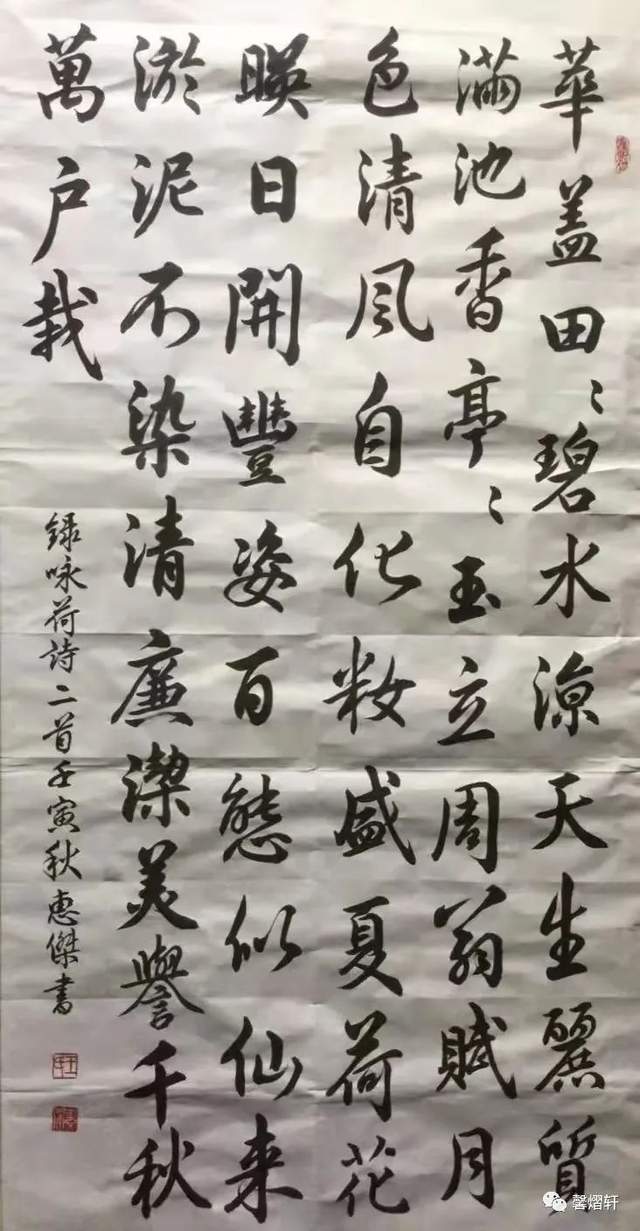 華盖田〻碧水涼天生麗質
滿池香亭〻玉立周翁賦月
色清风自化妝盛夏荷花
暎日開豐姿百態似仙来
淤泥不染清廉潔美譽千秋
萬户栽
録咏荷詩二首壬寅秋惠傑書
馨熠轩